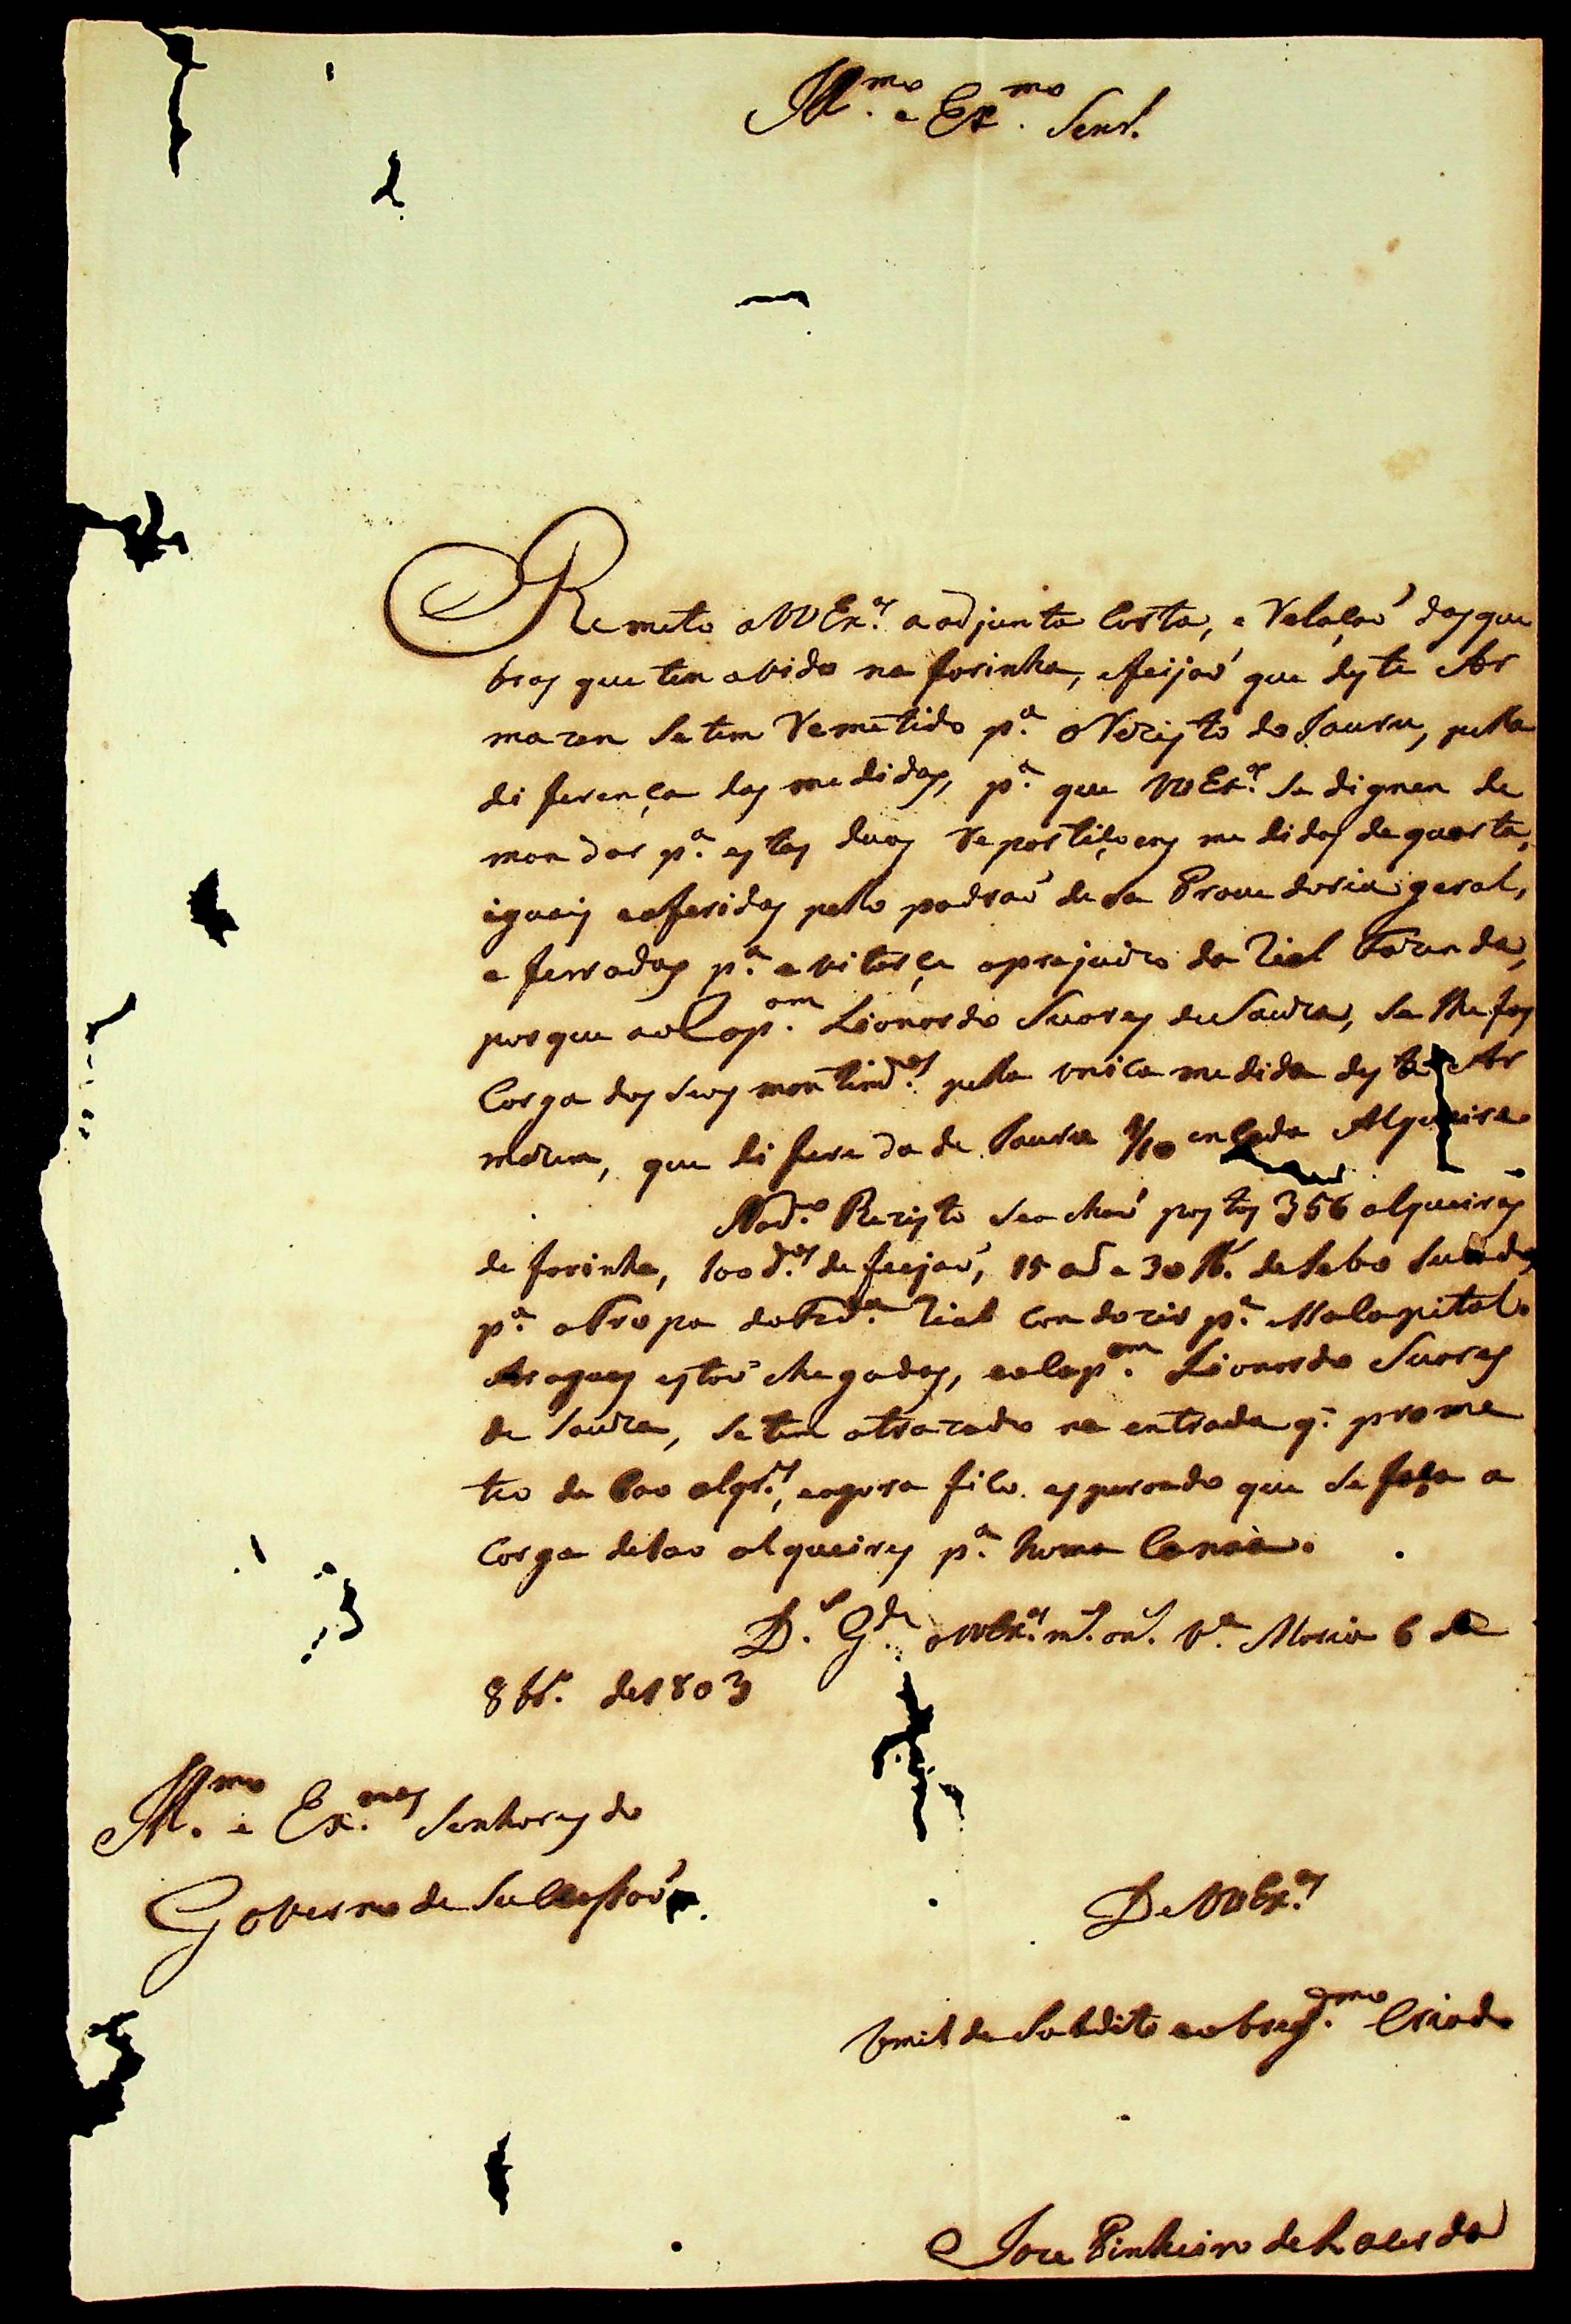 Ill.mo e Ex.mo Senr.
Remeto a VVEx.as a adjunta Costa, e Relaçaõ das que
bras que tem avido na farinha, e feijaõ que deste Ar
mazen se tem Remetido p.a o Rezisto do Jauru, pella
diferença das medidas, p.a que VVEx.as se dignen de
mandar p.a estas duas Repartiçoens medidas de quarta,
iguais e aferidas pello padraõ desa Provedoria geral,
e ferradas p.a evitarçe o prejuizo da Rial Fazenda,
porque ao Cap.am Lionardo Suares de Sauza, se lhe fas
Carga dos seos mantim.tos pella unica medida deste Ar
mazem, que difere da de Jauru 1/10 en Cada Alqueire
No d.o Rezisto se achaõ postos 356 alqueires
de farinha, 100 d.os de feijaõ, 15 @ e 30 lb. de Sebo
p.a a Tropa da Fzd.a Rial Condozir p.a essa Capital.
As agoas estaõ chegadas, e o Cap.am Lionardo Suares
de Sauza, se tem atrazado na entrada q. prome
teo de alqr.s, e agora fico esperando que se faça a
Carga de alqueires p.a huma Canoa.
D.s G.de a VVEx.as m.s an.s V.a Maria 6 de
8br.o de 1803
Ill.mo e Ex.mos Senhores do
Governo de Sucessaõ.
De VVEx.as
Umilde Subdito e obrig.mo Criado
Joze Pinheiro de Lacerda